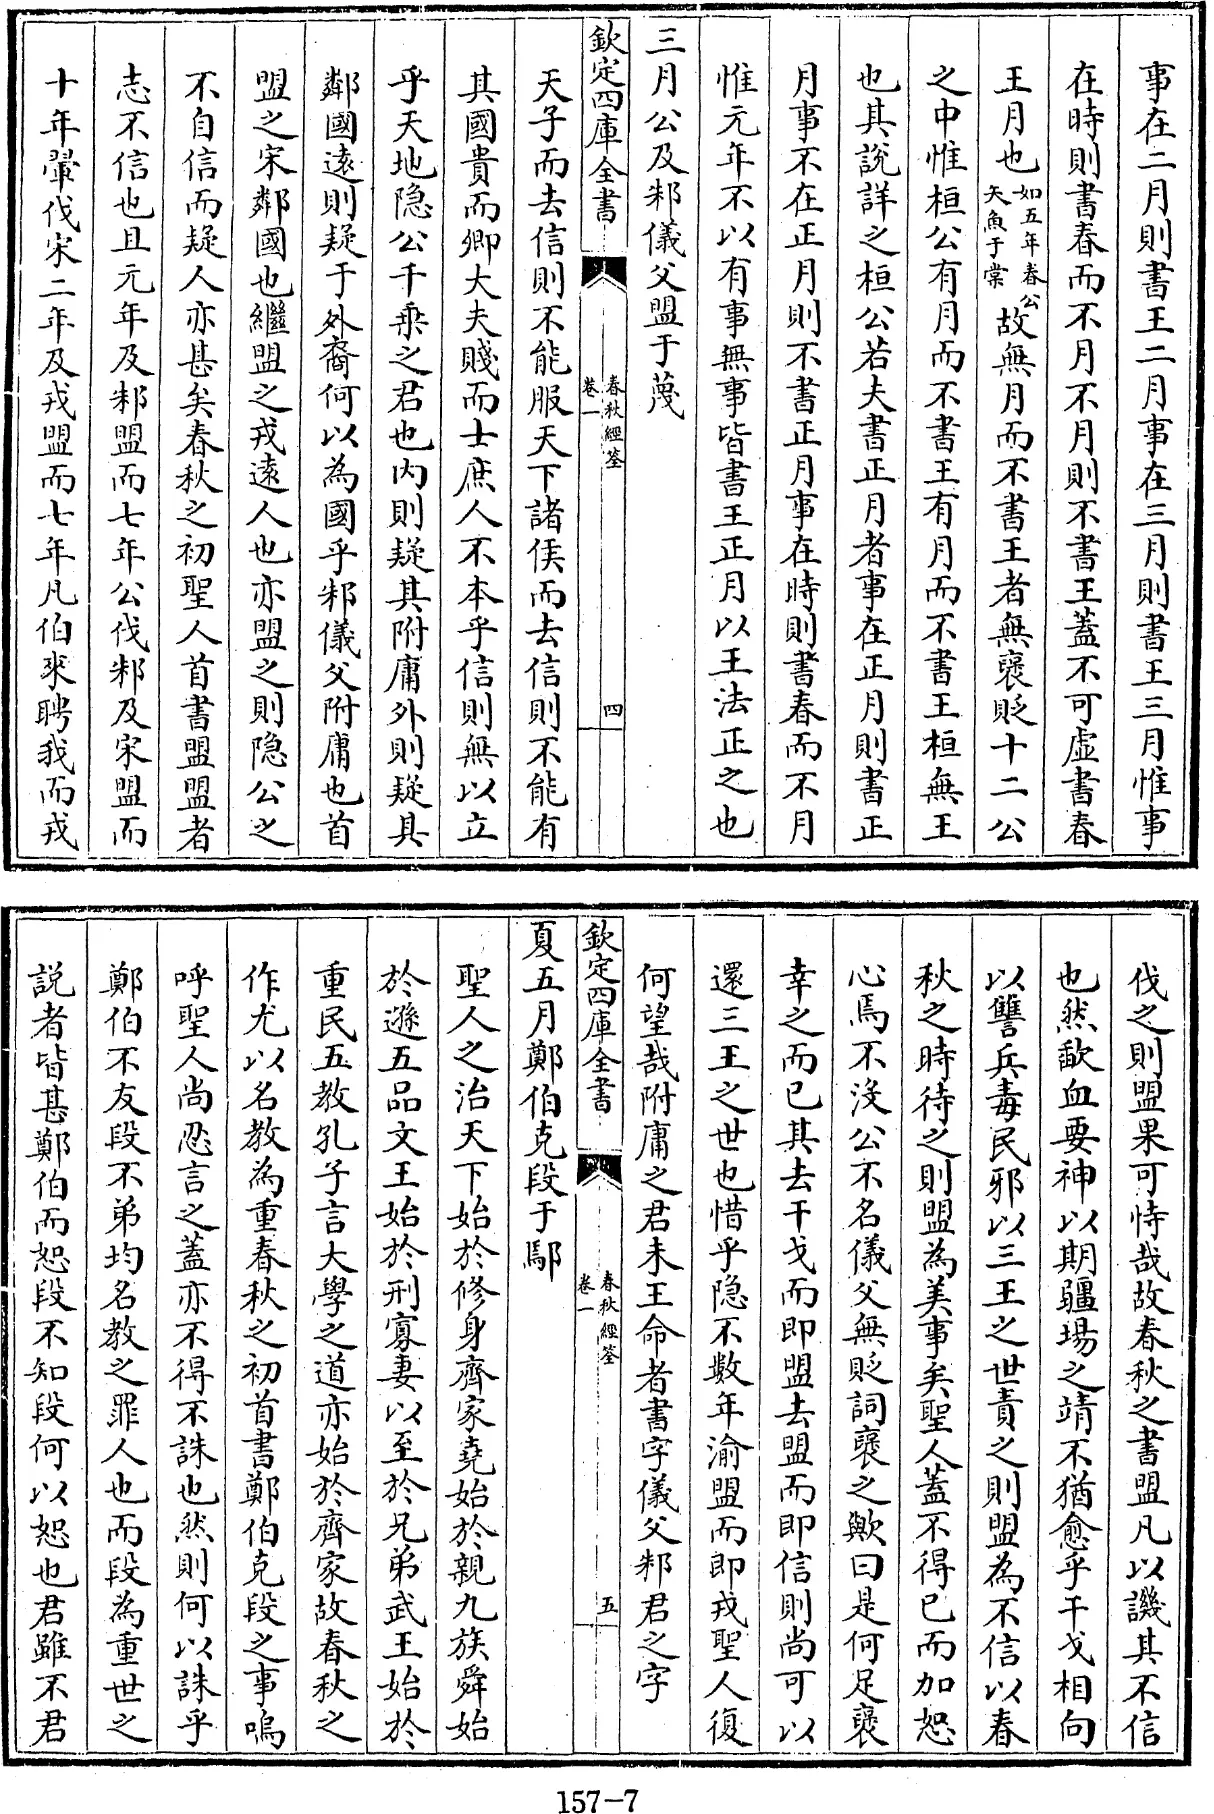 事在二月則書王二月事在三月則書王三月惟事
在時則書春而不月不月則不書王蓋不可虛書春
王月也如五年春公矢魚于棠故無月而不書王者無褒貶十二公
之中惟桓公有月而不書王有月而不書王桓無王
也其說詳之桓公若夫書正月者事在正月則書正
月事不在正月則不書正月事在時則書春而不月
惟元年不以有事無事皆書王正月以王法正之也
三月公及邾儀父盟于蔑
欽定四庫全書
春秋經筌
卷一
四
天子而去信則不能服天下諸侯而去信則不能有
其國貴而卿大夫賤而士庶人不本乎信則無以立
乎天地隠公千乗之君也内則疑其附庸外則疑具
鄰國遠則疑于外裔何以為國乎邾儀父附庸也首
盟之宋鄰國也繼盟之戎遠人也亦盟之則隠公之
不自信而疑人亦甚矣春秋之初聖人首書盟盟者
志不信也且元年及邾盟而七年公伐邾及宋盟而
十年翬伐宋二年及戎盟而七年凡伯來聘我而戎
伐之則盟果可恃哉故春秋之書盟凡以譏其不信
也然歃血要神以期疆場之靖不猶愈乎干戈相向
以讐兵毒民邪以三王之世責之則盟為不信以春
秋之時待之則盟為美事矣聖人蓋不得已而加恕
心焉不没公不名儀父無貶詞褒之歟曰是何足褒
幸之而已其去干戈而即盟去盟而即信則尚可以
還三王之世也惜乎隠不數年渝盟而即戎聖人復
何望哉附庸之君未王命者書字儀父邾君之字
欽定四庫全書
春秋經筌
卷一
五
夏五月鄭伯克段于鄢
聖人之治天下始於修身齊家堯始於親九族舜始
於遜五品文王始於刑寡妻以至於兄弟武王始於
重民五教孔子言大學之道亦始於齊家故春秋之
作尤以名教為重春秋之初首書鄭伯克段之事嗚
呼聖人尚忍言之蓋亦不得不誅也然則何以誅乎
鄭伯不友段不弟均名教之罪人也而段為重世之
説者皆甚鄭伯而恕段不知段何以恕也君雖不君
157-7